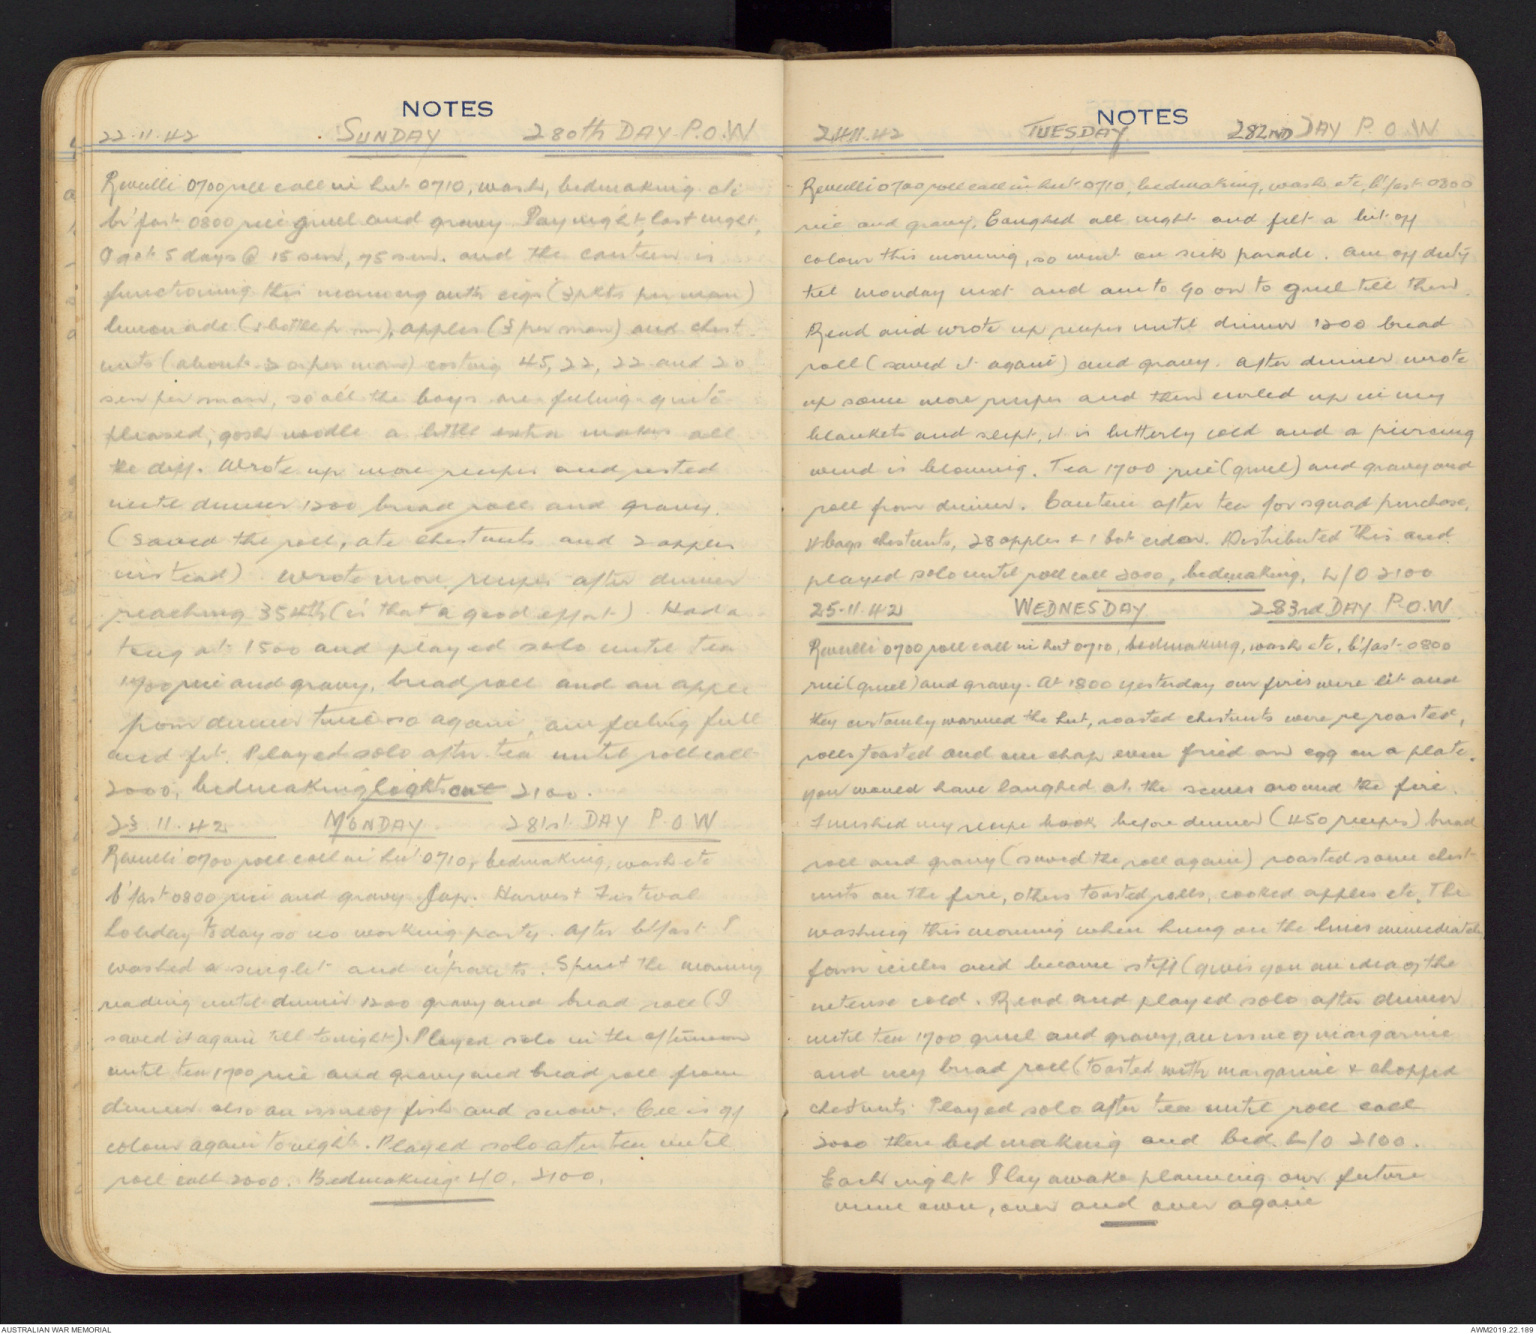 NOTES
22.11.42 SUNDAY 280th DAY P.O.W
Reveilli 0700 roll call in hut 0710, wash, bedmaking etc
b'fast 0800 rice gruel and gravy. Pay night last night,
I got 5 days @ 15 sen, 75 sen. and the canteen is
functioning this morning with cigs (3 pkts per man)
lemonade (1 bottle pr mn), apples (3 per man) and chest
nuts (about 20 per man) costing 45, 22, 22 and 20
sen per man, so all the boys are feeling quite
pleased, gosh noodle a little extra makes all
the diff. Wrote up more recipes and rested
until dinner 1200 bread roll and gravy.
(saved the roll, ate chestnuts and 2 apples
instead). Wrote more recipes after dinner
reaching 354th (is that a good effort). Had a
teng at 1500 and played solo until tea
1700 rice and gravy, bread roll and an apple
from dinner time so again am feeling full
and fit. Played solo after tea until roll call
2000, bedmaking lights out 2100.
23.11.42 MONDAY. 281st DAY P.O.W
Reveilli 0700 roll call in hut 0710, bedmaking, wash etc
b'fast 0800 rice and gravy. Jap. Harvest Festival
holiday today so no working party. After b'fast I
washed a singlet and u'pants. Spent the morning
reading until dinner 1200 gravy and bread roll (I
saved it again till tonight). Played solo in the afternoon
until tea 1700 rice and gravy and bread roll from
dinner also an issue of fish and snow. Cec is off
colour again tonight. Played solo after tea until
roll call 2000. Bedmaking L/O. 2100.
NOTES
24.11.42 TUESDAY 282ND DAY P.O.W
Reveilli 0700 roll call in hut 0710, bedmaking, wash etc, b'fast 0800
rice and gravy. Coughed all night and felt a bit off
colour this morning, so went on sick parade. Am off duty
til monday next and am to go on to gruel till then.
Read and wrote up recipes until dinner 1200 bread
roll (saved it again) and gravy. After dinner wrote
up some more recipes and then curled up in my
blankets and slept, it is bitterly cold and a piercing
wind is blowing. Tea 1700 rice (gruel) and gravy and
roll from dinner. Canteen after tea for squad purchase,
4 bags chestnuts, 28 apples & 1 bot cider. Distributed this and
played solo until roll call 2000, bedmaking, L/O 2100
25.11.42 WEDNESDAY 283rd DAY P.O.W
Reveilli 0700 roll call in hut 0710, bedmaking, wash etc, b'fast 0800
rice (gruel) and gravy. At 1800 yesterday our fires were lit and
they certainly warmed the hut, roasted chestnuts were re roasted,
rolls toasted and one chap even fried an egg on a plate.
You would have laughed at the scenes around the fire.
Finished my recipe book before dinner (450 recipes) bread
roll and gravy (saved the roll again) roasted some chest
nuts on the fire, others toasted rolls, cooked apples etc. The
washing this morning when hung on the lines immediately
form icicles and became stiff (gives you an idea of the
intense cold. Read and played solo after dinner
until tea 1700 gruel and gravy, an issue of margarine
and my bread roll (toasted with margarine & chopped
chestnuts. Played solo after tea until roll call
2000 then bed making and bed. L/O 2100.
Each night I lay awake planning our future
mine own, over and over again
AUSTRALIAN WAR MEMORIAL
AWM2019.22.189